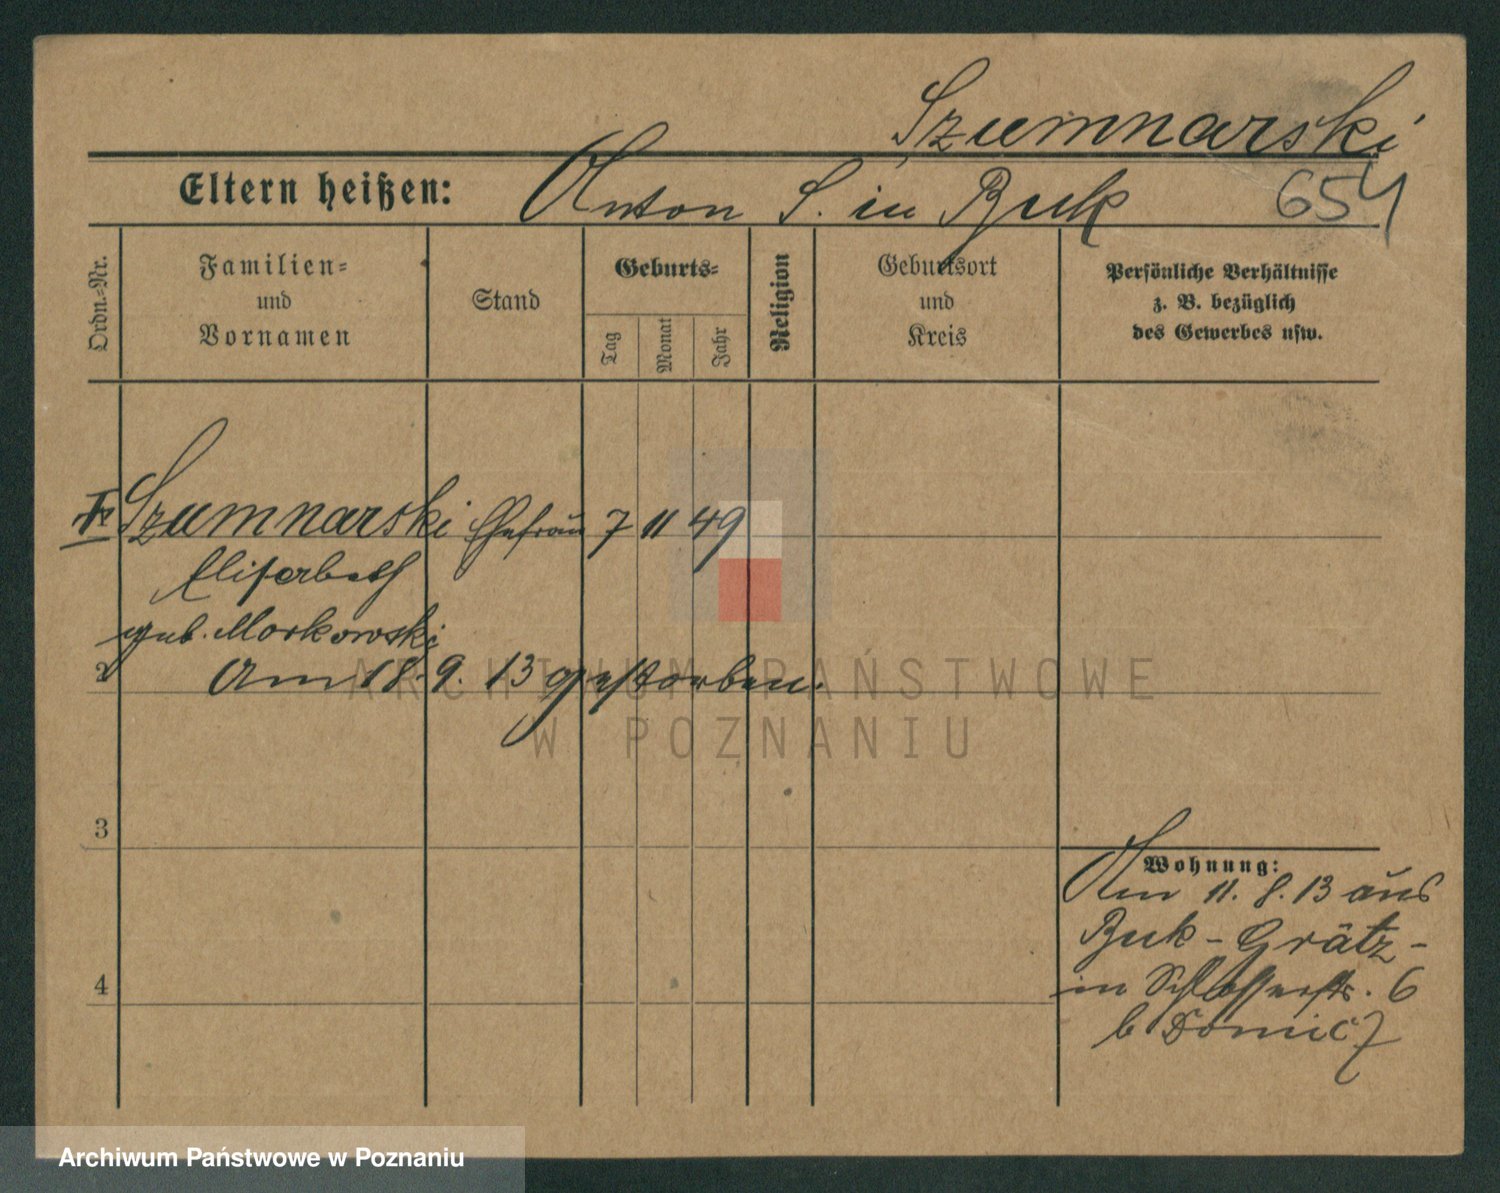 Szumnarski
Eltern heißen: Anton S. in Buk 654
Ordn.-Nr.
Familien-
und
Vornamen
Stand
Geburts-
Tag
Monat
Jahr
Religion
Geburtsort
und
Kreis
Persönliche Verhältnisse
z. B. bezüglich
des Gewerbes usw.
Szumnarski Ehefrau 7 11 49
Elisabeth
geb. Morkowski
2 Am 18. 9. 13 gestorben.
ARCHIWUM PAŃSTWOWE
W POZNANIU
3
Wohnung:
Am 11. 8. 13 aus
Buk - Grätz -
in Schlosserstr. 6
4
b
Archiwum Państwowe w Poznaniu